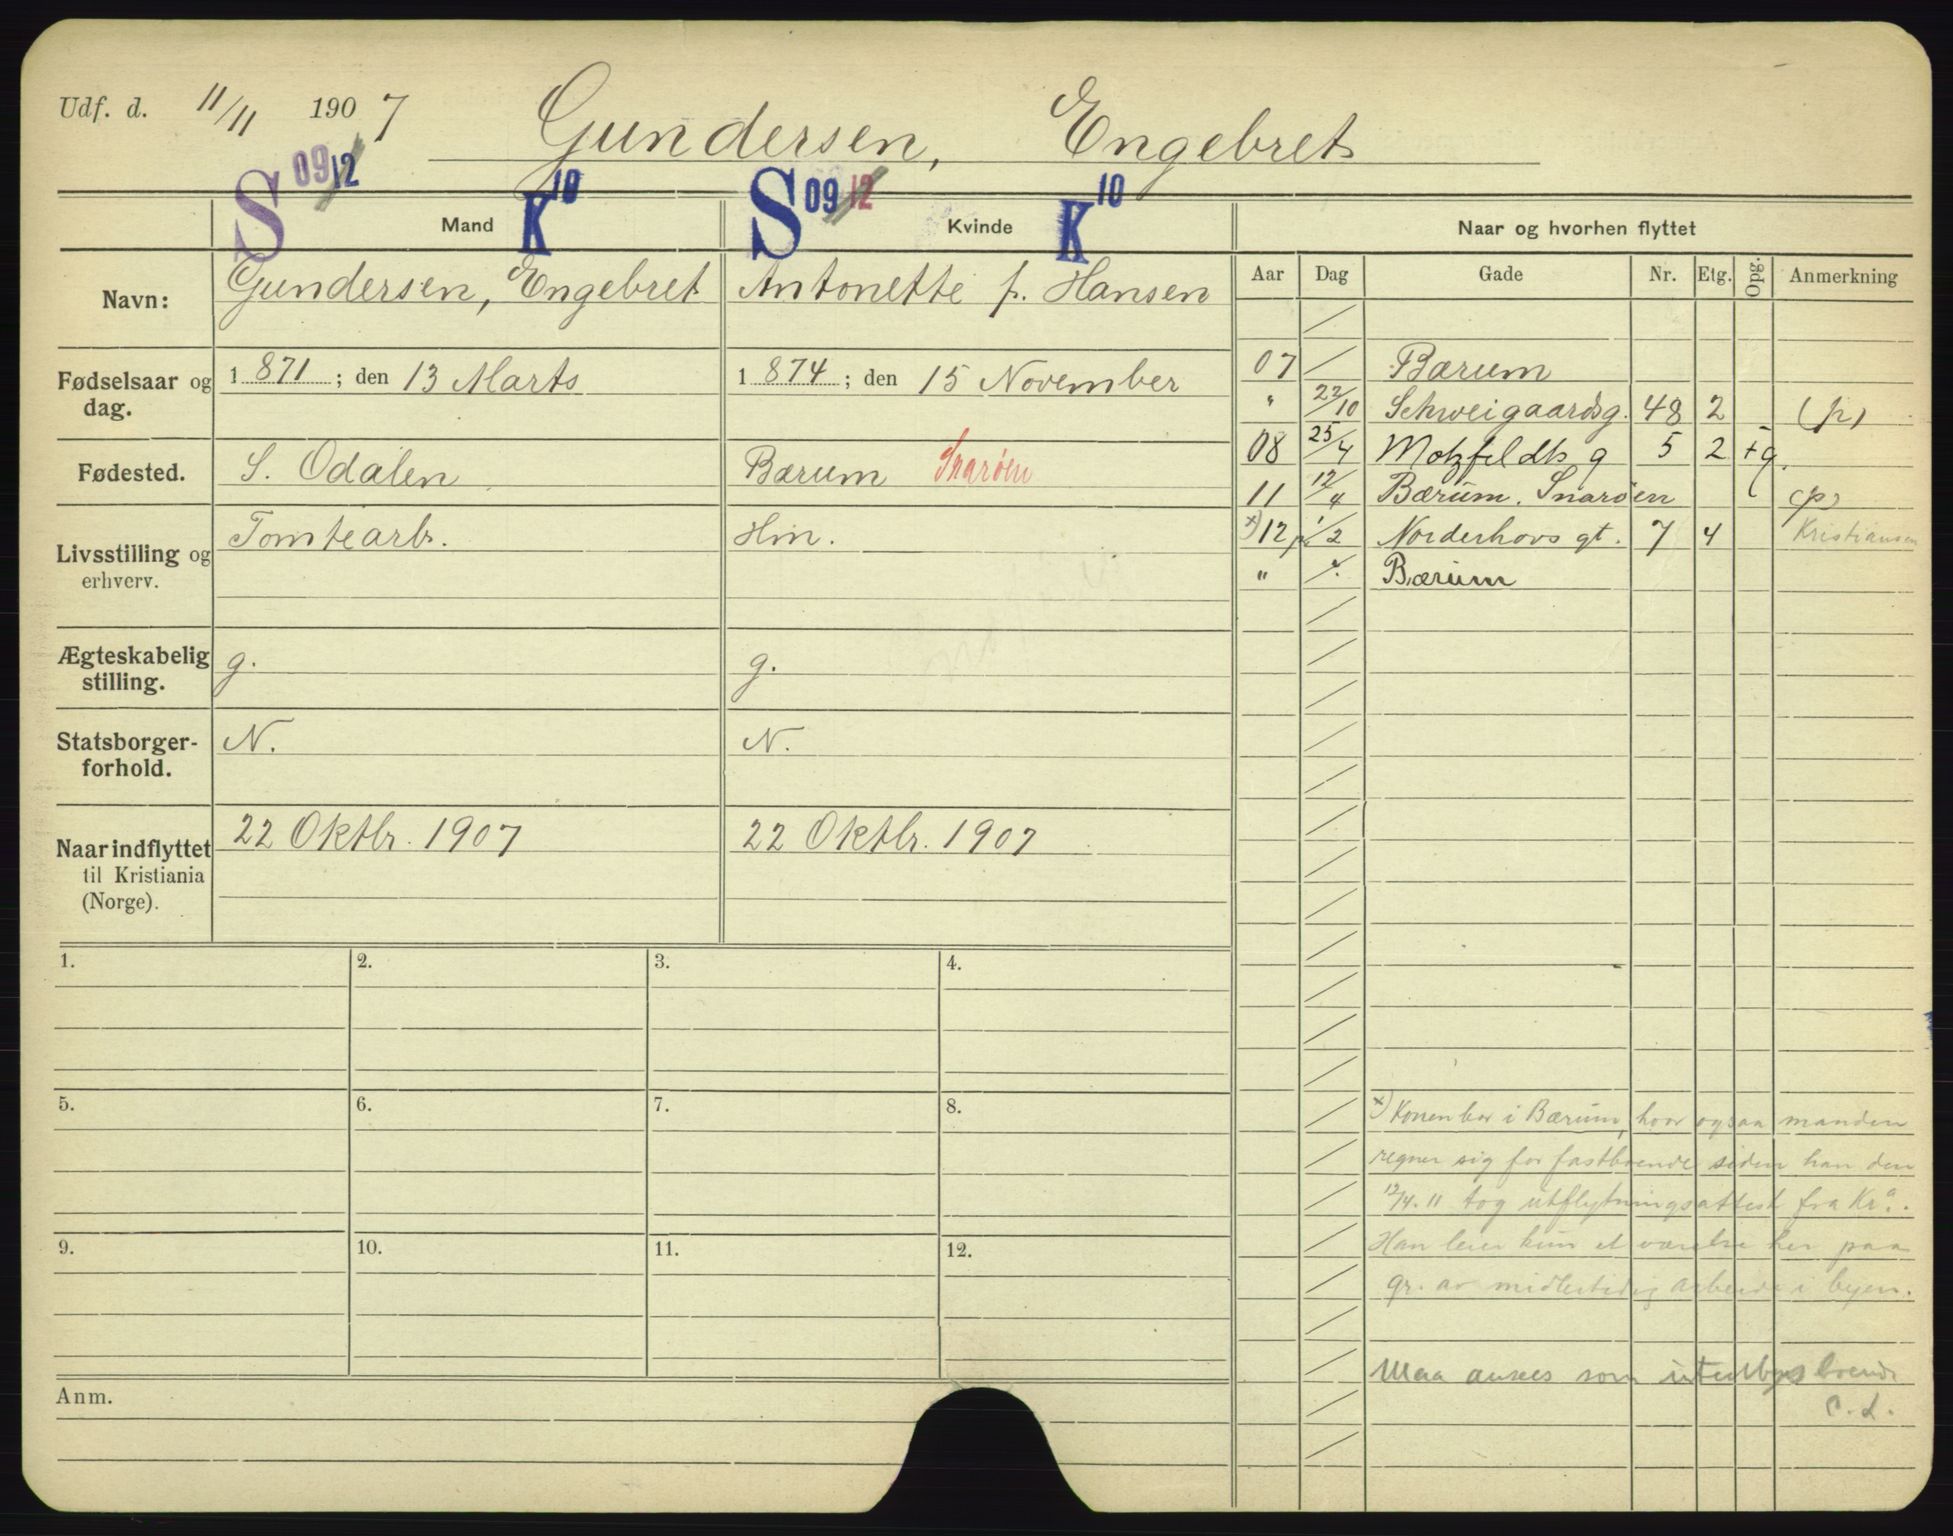 Udf. d. 11/11 1907 Gundersen, Engebret
S 09/12 K 10 S 09/12 K 10
Mand Kvinde Naar og hvorhen flyttet
Aar Dag Gade Nr. Etg. Opg. Anmerkning
Navn: Gundersen, Engebret Antonette f. Hansen
Fødselsaar og dag. 1871; den 13 Marts 1874; den 15 November
Fødested. S. Odalen Bærum Snarøen
Livsstilling og erhverv. Tomtearb. Hm.
Ægteskabelig stilling. g. g.
Statsborger-forhold. N. N.
Naar indflyttet til Kristiania (Norge). 22 Oktbr. 1907 22 Oktbr. 1907
07 Bærum
" 22/10 Schweigaardsg. 48 2 (p)
08 25/4 Motzfeldts g 5 2 + g.
11 12/4 Bærum. Snarøen (p)
x) 12 1/2 Norderhovs gt. 7 4 Kristiansen
" ". Bærum
1. 2. 3. 4.
5. 6. 7. 8.
9. 10. 11. 12.
Anm.
x) Konen bor i Bærum, hvor ogsaa manden
regner sig for fastboende siden han den
12/4. 11 tog utflytningsattest fra Kra.
Han leier kun et værelse her paa
gr. av midlertidig arbeide i byen.
Maa ansees som utenbys boende
C. L.